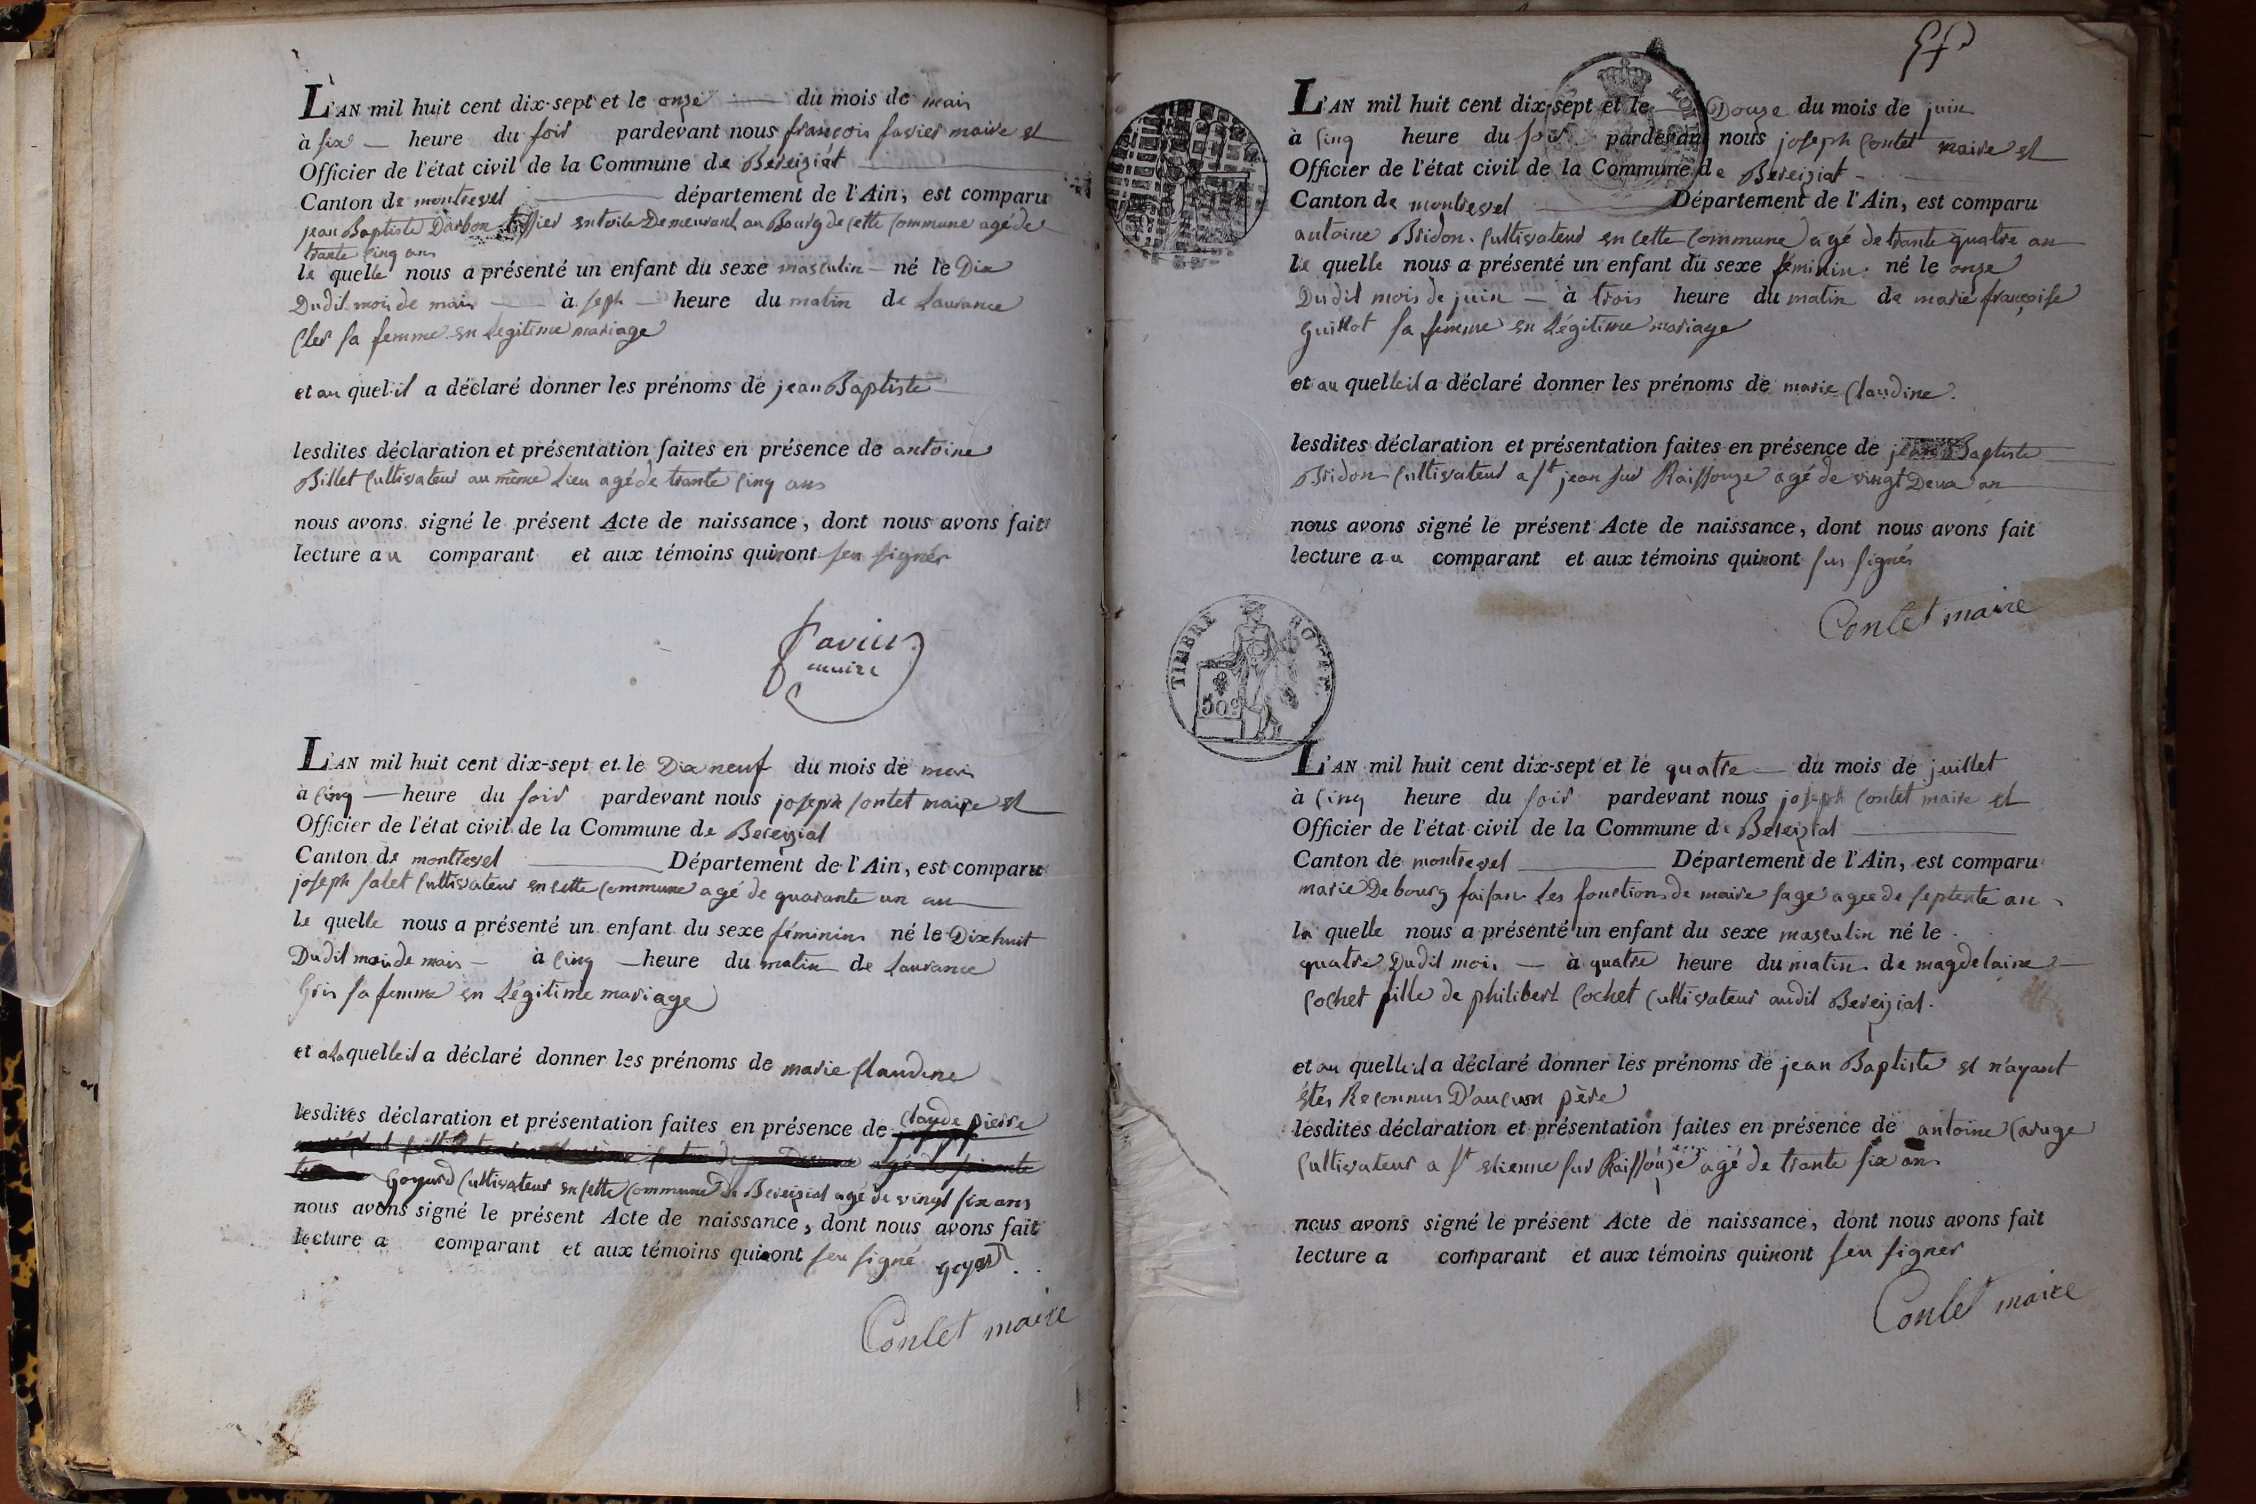 L'AN mil huit cent dix-sept et le onze du mois de mais
à six heure du soir pardevant nous françois favier maire et
Officier de l'état civil de la Commune de Bereiziat
Canton de montrevel département de l'Ain, est comparu
jean Baptiste Darbon tissier en toile Demeurant au Bourg de cette Commune agé de
trante Cinq ans
le quelle nous a présenté un enfant du sexe masculin né le Dix
Dudit mois de mais à seph heure du matin de Laurance
Cler sa femme en Legitime mariage
et au quel il a déclaré donner les prénoms de jean Baptiste
lesdites déclaration et présentation faites en présence de antoine
Billet Cultivateur au même Lieu agé de trante Cinq ans
nous avons signé le présent Acte de naissance, dont nous avons fait
lecture au comparant et aux témoins qui nont seu signér
favier
maire
L'AN mil huit cent dix-sept et le Dix neuf du mois de mai
à Cinq heure du soir pardevant nous joseph Contet maire et
Officier de l'état civil de la Commune de Bereiziat
Canton de montrevel Département de l'Ain, est comparu
joseph salet Cultivateur en cette Commune agé de quarante un an
le quelle nous a présenté un enfant du sexe féminin né le Dixhuit
Dudit moi de mais à Cinq heure du matin de Laurance
Gris sa femme en Légitime mariage
et a la quelle il a déclaré donner les prénoms de marie Claudine
lesdites déclaration et présentation faites en présence de Claude pierre
Goyard Cultivateur en cette Commune de Bereiziat agé de vingt six ans
nous avons signé le présent Acte de naissance, dont nous avons fait
lecture a comparant et aux témoins qui ont seu signé Goyard
Contet maire
L'AN mil huit cent dix-sept et le Douze du mois de juin
à Cinq heure du soir pardevant nous joseph Contet maire et
Officier de l'état civil de la Commune de Bereiziat
Canton de montrevel Département de l'Ain, est comparu
antoine Bridon Cultivateur en Cette Commune agé de trante quatre an
le quelle nous a présenté un enfant du sexe féminin né le onze
Dudit mois de juin à trois heure du matin de marie françoise
guillot sa femme en Légitime mariage
et au quelle il a déclaré donner les prénoms de marie Claudine.
lesdites déclaration et présentation faites en présence de jean Baptiste
Bridon Cultivateur a St jean sur Raissouze agé de vingt Deux an
nous avons signé le présent Acte de naissance, dont nous avons fait
lecture au comparant et aux témoins qui nont sus signés
Contet maire
TIMBRE ROYAL
50 c
L'AN mil huit cent dix-sept et le quatre du mois de juillet
à Cinq heure du soir pardevant nous joseph Contet maire et
Officier de l'état civil de la Commune de Bereiziat
Canton de montrevel Département de l'Ain, est comparu
marie Debourg faisan Les fonctions de maire sage agee de septente an
la quelle nous a présenté un enfant du sexe masculin né le
quatre Dudit mois à quatre heure du matin de magdelaine
Cochet fille de philibert Cochet Cultivateur audit Bereiziat.
et au quelle il a déclaré donner les prénoms de jean Baptiste et n'ayant
étés Reconnus D'aucun père
lesdites déclaration et présentation faites en présence de antoine Caruge
Cultivateur a St etienne sur Raissouze agé de trante six ans
nous avons signé le présent Acte de naissance, dont nous avons fait
lecture a comparant et aux témoins qui nont seu signer
Contet maire